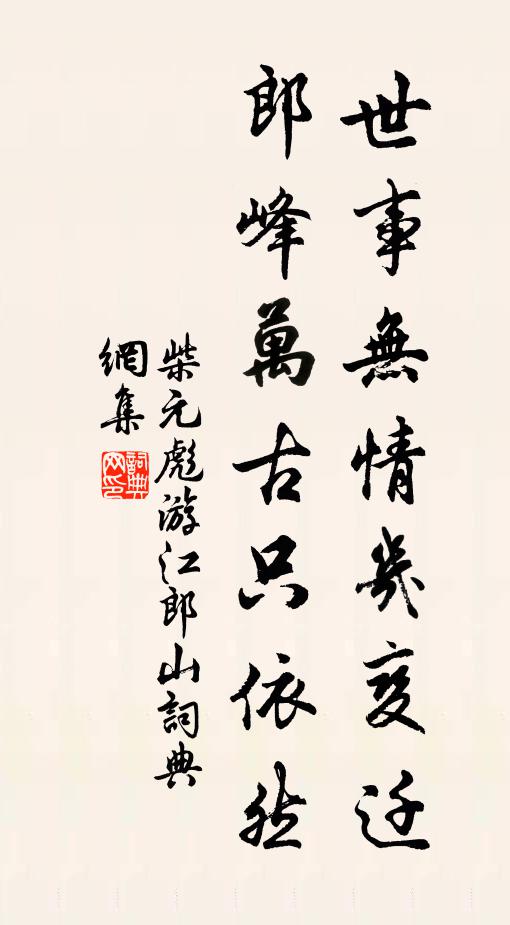 世事無情幾變迁
郎峰萬古只依然
柴元彪游江郎山詞典
網集
詞典网印